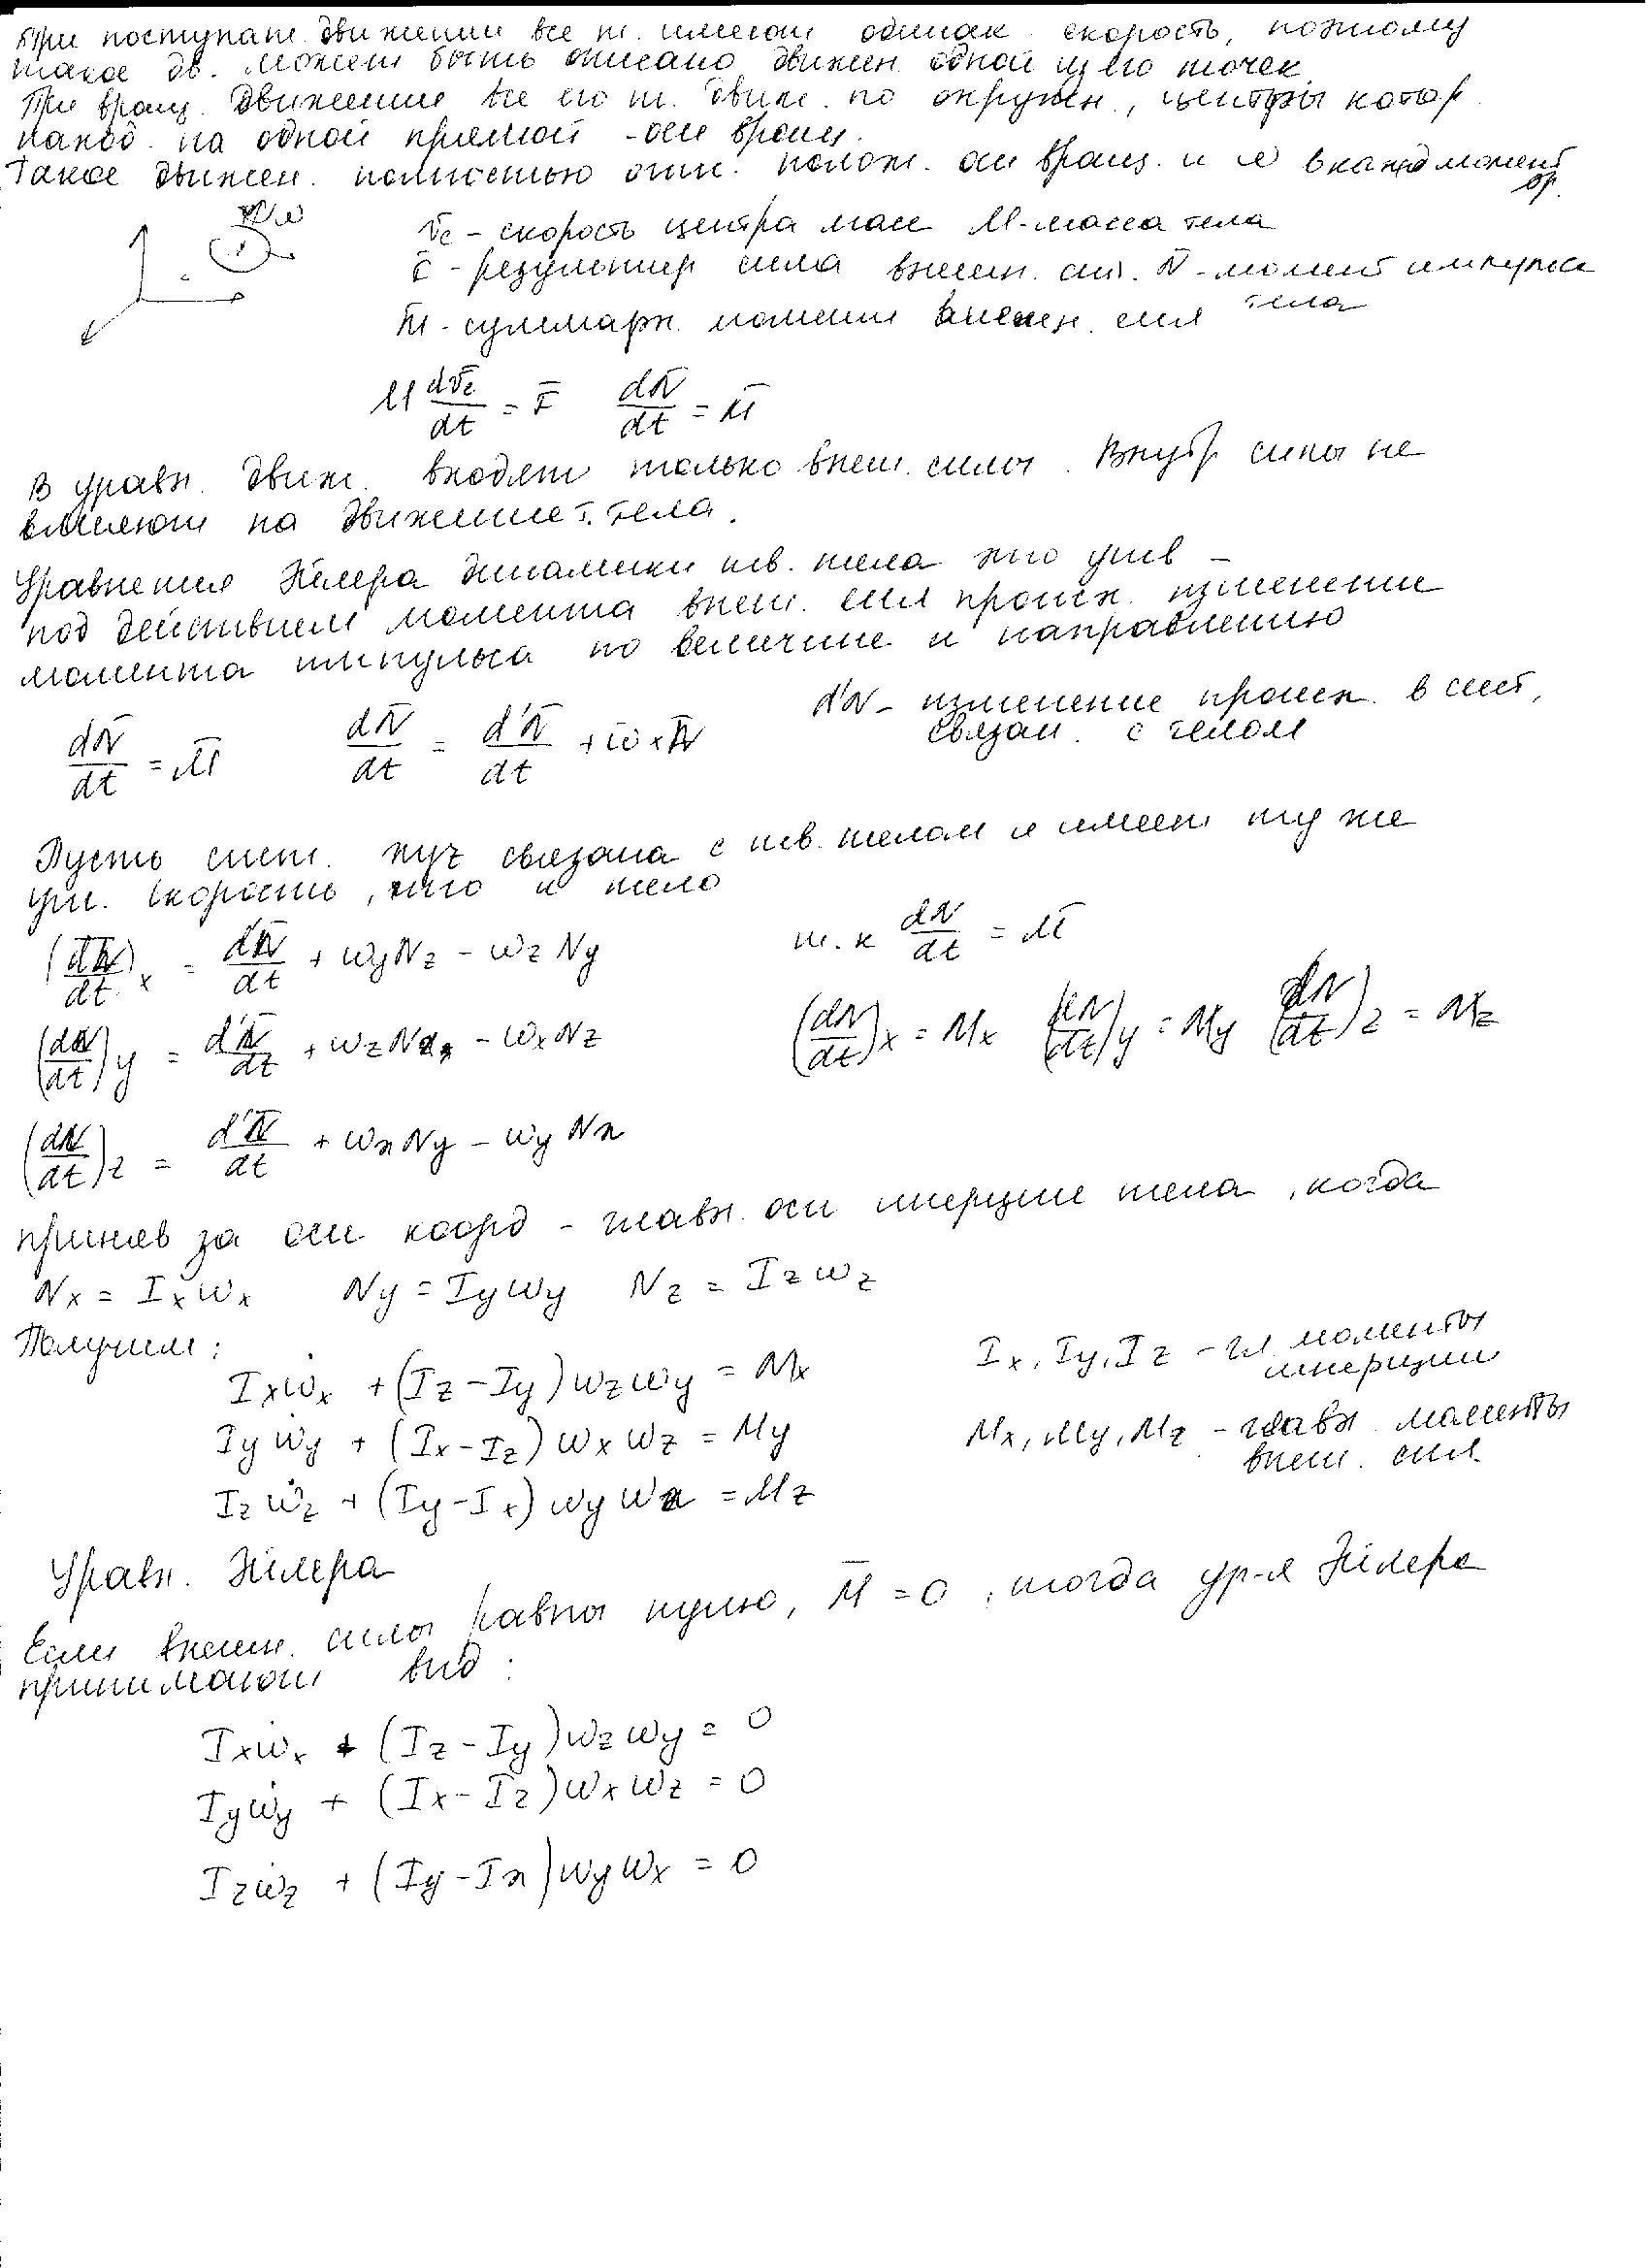 При поступат. движении все т. имеют одинак. скорость, поэтому
такое дв. может быть описано движен. одной из его точек.
При вращ. движении все его т. движ. по окружн., центры котор.
наход. на одной прямой - оси вращ.
Такое движен. полностью опис. полож. оси вращ. и ω в кажд момент
вр.
ω
v̄c - скорость центра масс M - масса тела
F̄ - результир сила внешн. сил. N̄ - момент импульса
тела
M̄ - суммарн. момент внешн. сил
M dv̄c/dt = F̄ dN̄/dt = M̄
В уравн. движ. входят только внеш. силы. Внутр силы не
влияют на движение т. тела.
Уравнения Эйлера динамики тв. тела это ур-ив -
под действием момента внеш. сил происх. изменение
момента импульса по величине и направлению
dN̄/dt = M̄ dN̄/dt = d'N̄/dt + ω̄ × N̄ d'N - изменение происх. в сист,
связан. с телом
Пусть сист. xyz связана с тв. телом и имеет ту же
угл. скорость, что и тело
(dN̄/dt)x = d'N̄/dt + ωyNz - ωzNy т. к dN/dt = M̄
(dN/dt)y = d'N̄/dt + ωzNx - ωxNz (dN/dt)x = Mx (dN/dt)y = My (dN/dt)z = Mz
(dN/dt)z = d'N̄/dt + ωxNy - ωyNx
приняв за оси коорд - главн. оси инерции тела, когда
Nx = Ixωx Ny = Iyωy Nz = Izωz
Получим:
Ixω̇x + (Iz - Iy)ωzωy = Mx Ix, Iy, Iz - гл. моменты
инерции
Iyω̇y + (Ix - Iz)ωxωz = My Mx, My, Mz - главн. моменты
внеш. сил
Izω̇z + (Iy - Ix)ωyωx = Mz
Уравн. Эйлера
Если внешн. силы равны нулю, M̄ = 0, тогда ур-я Эйлера
принимают вид:
Ixω̇x + (Iz - Iy)ωzωy = 0
Iyω̇y + (Ix - Iz)ωxωz = 0
Izω̇z + (Iy - Ix)ωyωx = 0